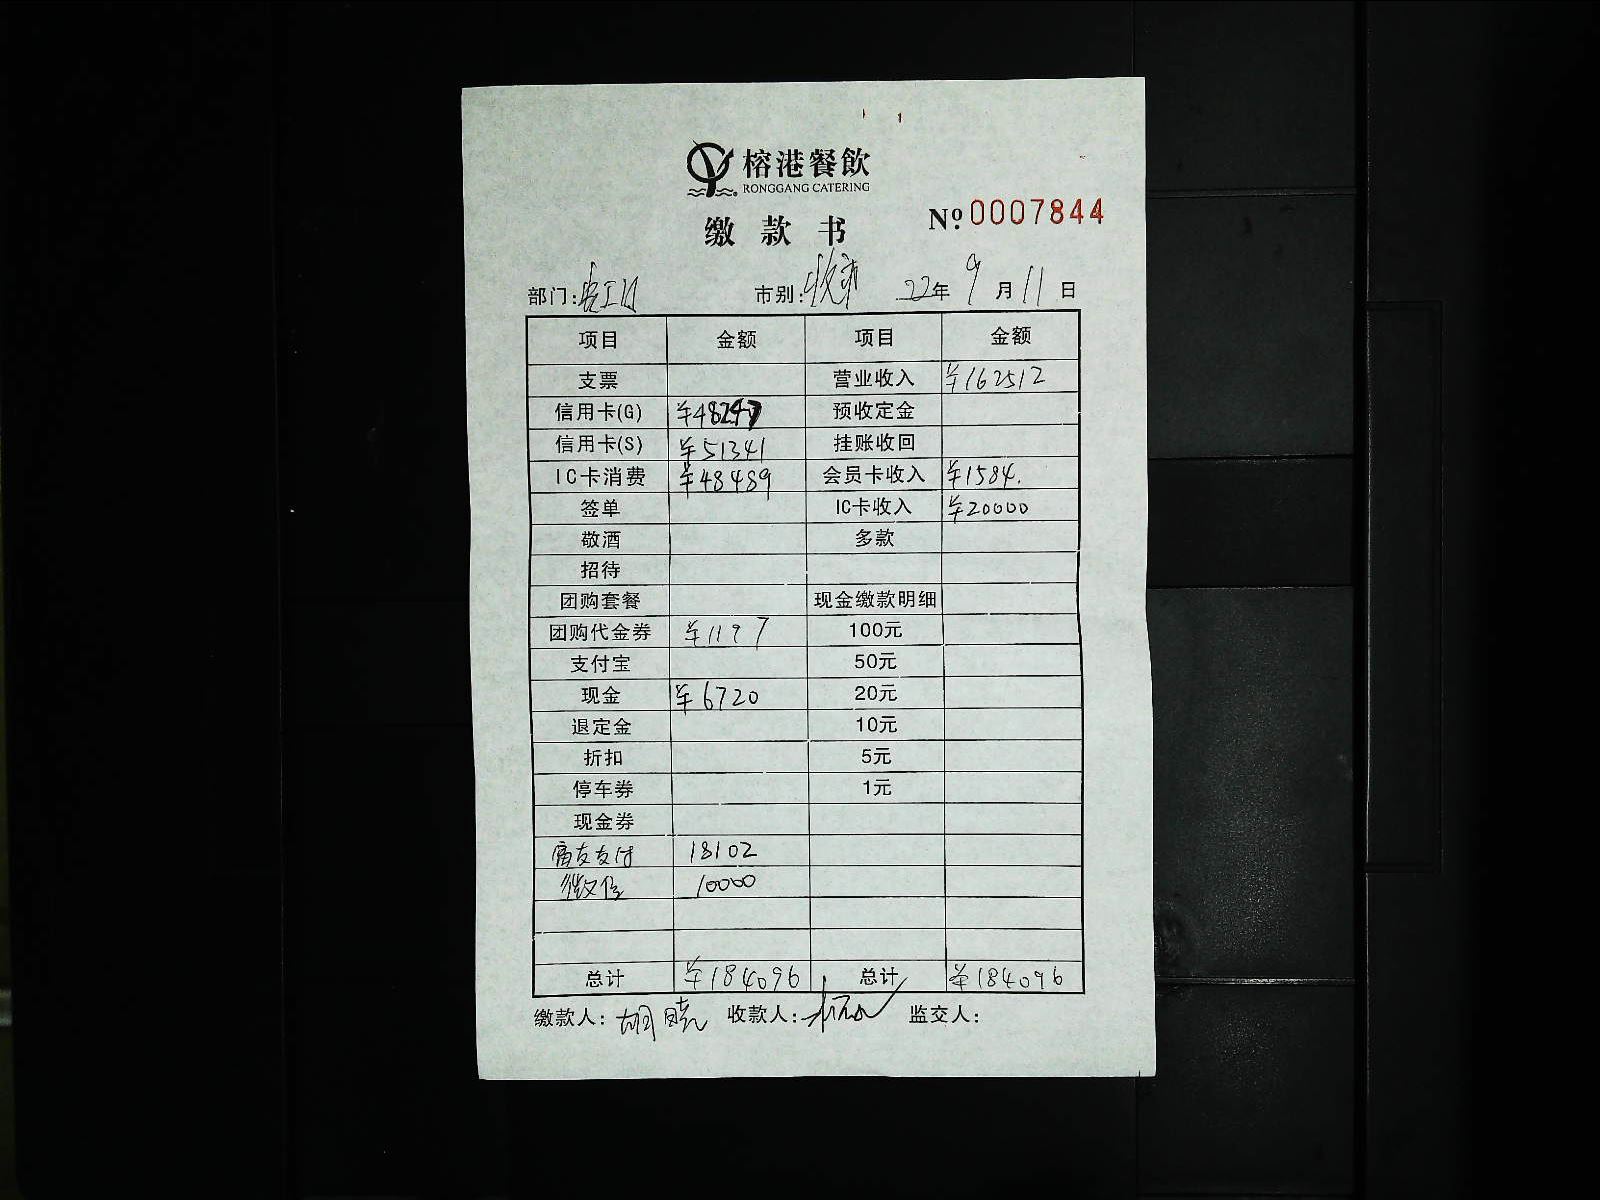 榕港餐飲
RONGGANG CATERING
缴款书 №.0007844
部门: 市别:收市 22年9月11日
项目 金额 项目 金额
支票 营业收入 ¥162512
信用卡(G) ¥48247 预收定金
信用卡(S) ¥51341 挂账收回
IC卡消费 ¥48489 会员卡收入 ¥1584.
签单 IC卡收入 ¥20000
敬酒 多款
招待
团购套餐 现金缴款明细
团购代金券 ¥1197 100元
支付宝 50元
现金 ¥6720 20元
退定金 10元
折扣 5元
停车券 1元
现金券
商友支付 18102
微信 10000
总计 ¥184096 总计 ¥184096
缴款人:胡晓 收款人: 监交人: